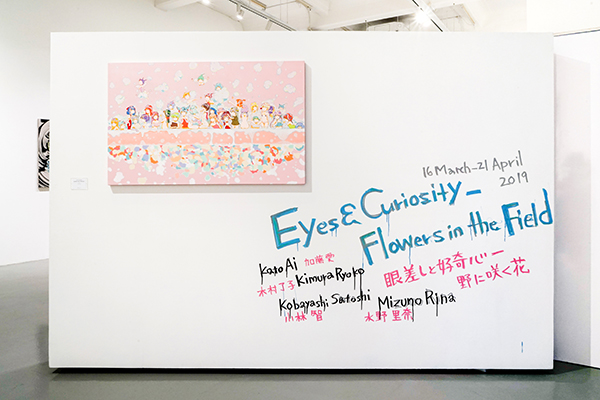 16 March-21 April
2019
Eyes & Curiosity —
Flowers in the Field
Kato Ai 加藤愛
木村了子 Kimura Ryoko
眼差しと好奇心ー
野に咲く花
Kobayashi Satoshi
小林 智
Mizuno Rina
水野 里奈